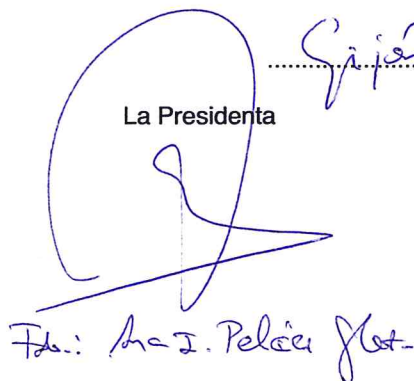 Gijón
La Presidenta
Fdo.: Ana I. Peláez